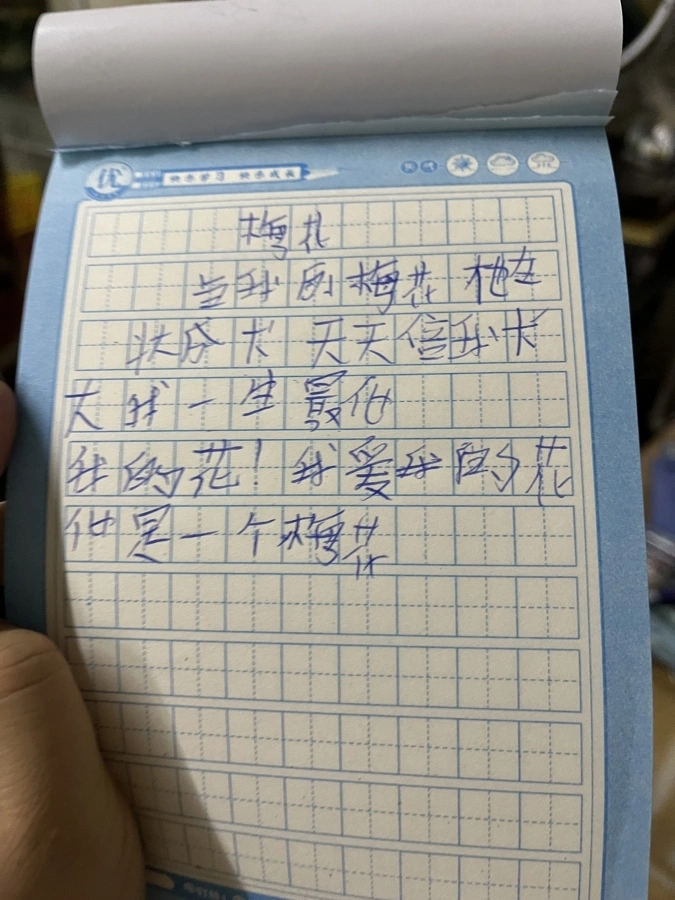 优 快乐学习 快乐成长
梅花
当我的梅花他在
状成大 天天信我长
大我一生最他
我的花!我爱我的花
他是一个梅花